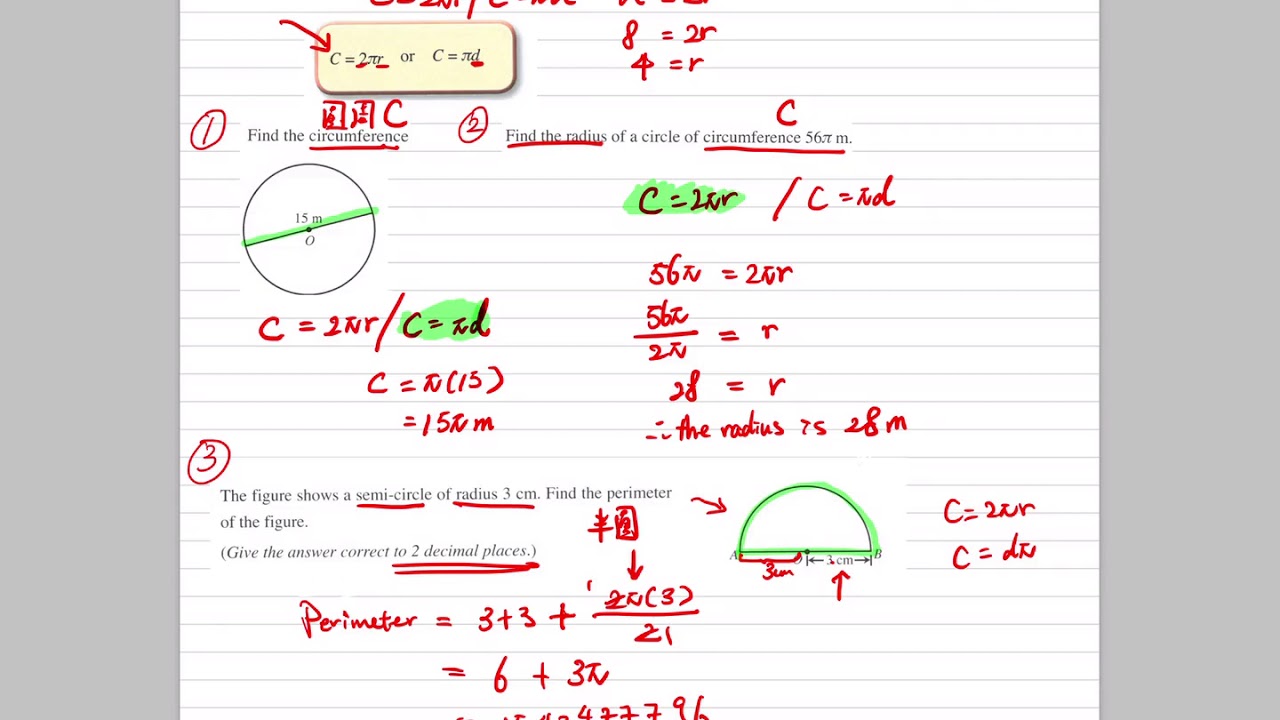 8 = 2r
4 = r
C = 2πr or C = πd
圓周 C
① Find the circumference
15 m
O
C = 2πr / C = πd
C = π(15)
= 15π m
C
② Find the radius of a circle of circumference 56π m.
C = 2πr / C = πd
56π = 2πr
56π/2π = r
28 = r
∴ the radius is 28 m
③
The figure shows a semi-circle of radius 3 cm. Find the perimeter
of the figure.
(Give the answer correct to 2 decimal places.)
半圓
A O 3 cm B
3cm
C = 2πr
C = dπ
Perimeter = 3+3 + 2π(3)/2
= 6 + 3π